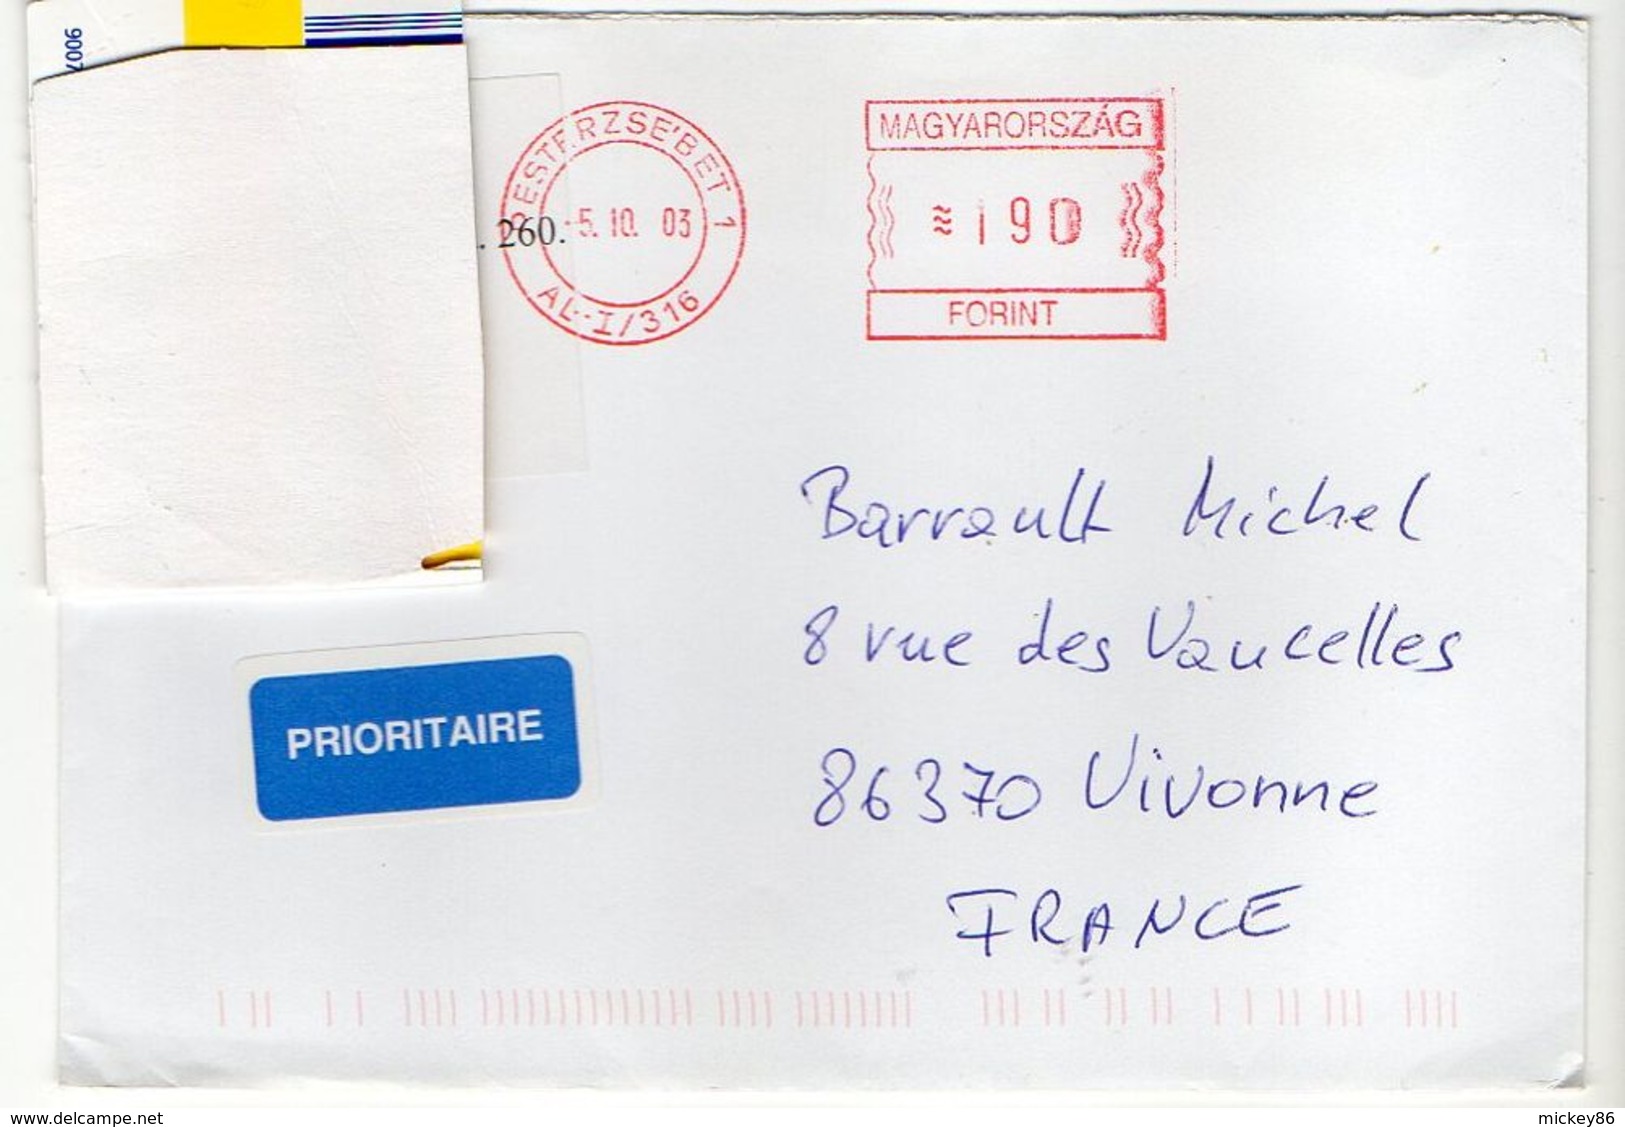 9007
PESTERZSE'BET 1
. 260.
5. 10. 03
AL-I/316
MAGYARORSZÁG
≈ 190
FORINT
Barrault Michel
8 rue des Vaucelles
PRIORITAIRE
86370 Vivonne
FRANCE
www.delcampe.net
mickey86